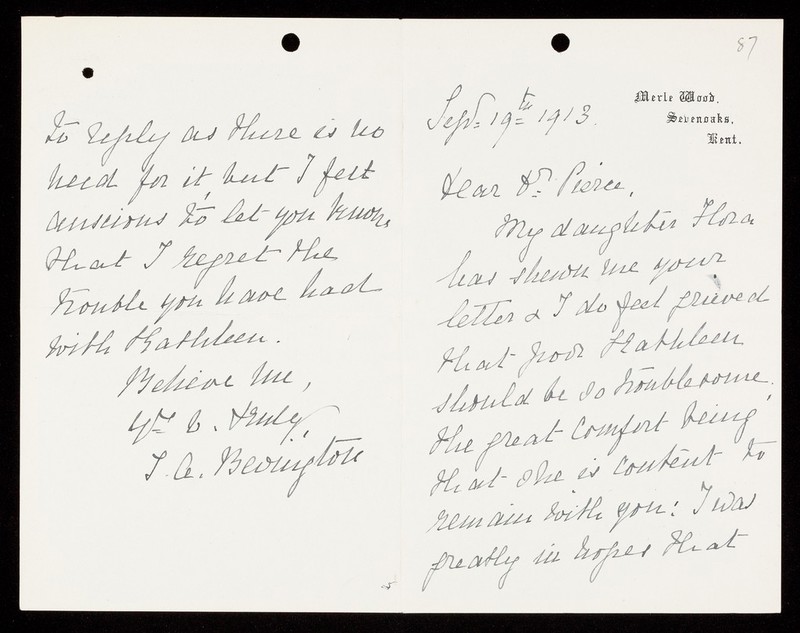 87
Merle Wood,
Sevenoaks,
Kent.
Sept: 19th 1913.
Dear Dr. Pierce,
My daughter Flora
has shewn me your
letter & I do feel grieved
that poor Kathleen
should be so troublesome,
the great comfort being
that she is content to
remain with you: I was
greatly in hopes that
to reply as there is no
need for it, but I felt
anxcious to let you know,
that I regret the
trouble you have had
with Kathleen.
Believe me,
Yrs v. truly,
Bevington